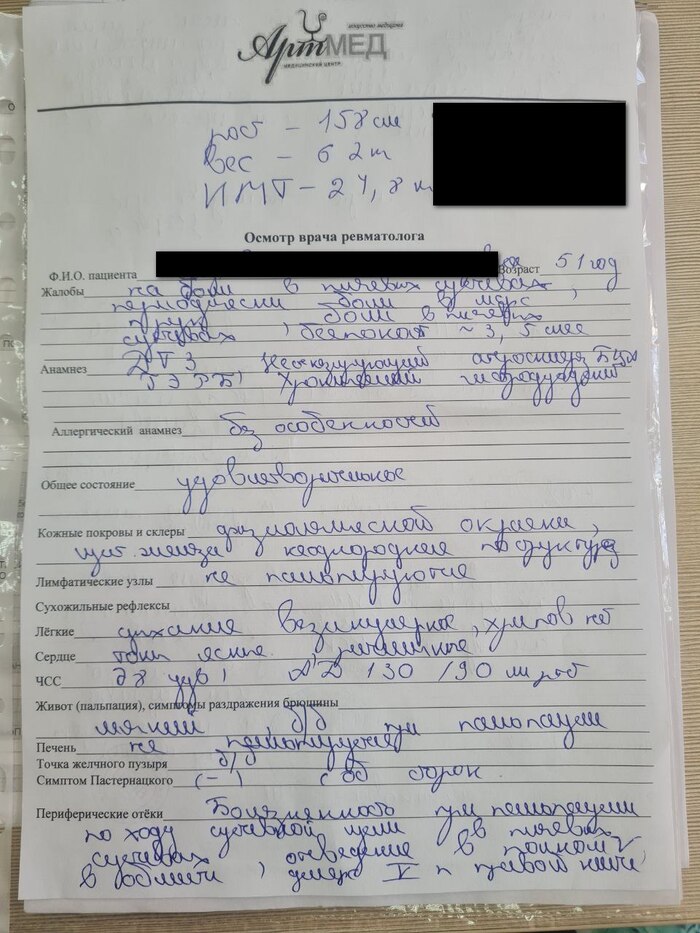 искусство медицины
АртМЕД
МЕДИЦИНСКИЙ ЦЕНТР
рост – 158 см
вес – 62 кг
ИМТ – 24,8 кг
Осмотр врача ревматолога
Ф.И.О. пациента Возраст 51 год
Жалобы на боли в плечевых суставах,
периодически боли в
боли в плечевых
суставах, беспокоят ~ 3,5 мес
Анамнез ДТЗ Нестенозирующий атеросклероз БЦА
ГЭРБ, Хронический гастродуоденит
Аллергический анамнез без особенностей
Общее состояние удовлетворительное
Кожные покровы и склеры физиологической окраски,
щит. железа неоднородная по структуре
Лимфатические узлы не пальпируются
Сухожильные рефлексы
Лёгкие дыхание везикулярное, хрипов нет
Сердце тоны ясные, ритмичные
ЧСС уд/ АД 130/90 мм рт ст
Живот (пальпация), симптомы раздражения брюшины
мягкий, б/б при пальпации
Печень не пальпируется
Точка желчного пузыря б/б
Симптом Пастернацкого (–) с об сторон
Периферические отёки Болезненность при пальпации
по ходу суставной щели в плечевых
суставах, отведение в полном
в области V п правой кисти